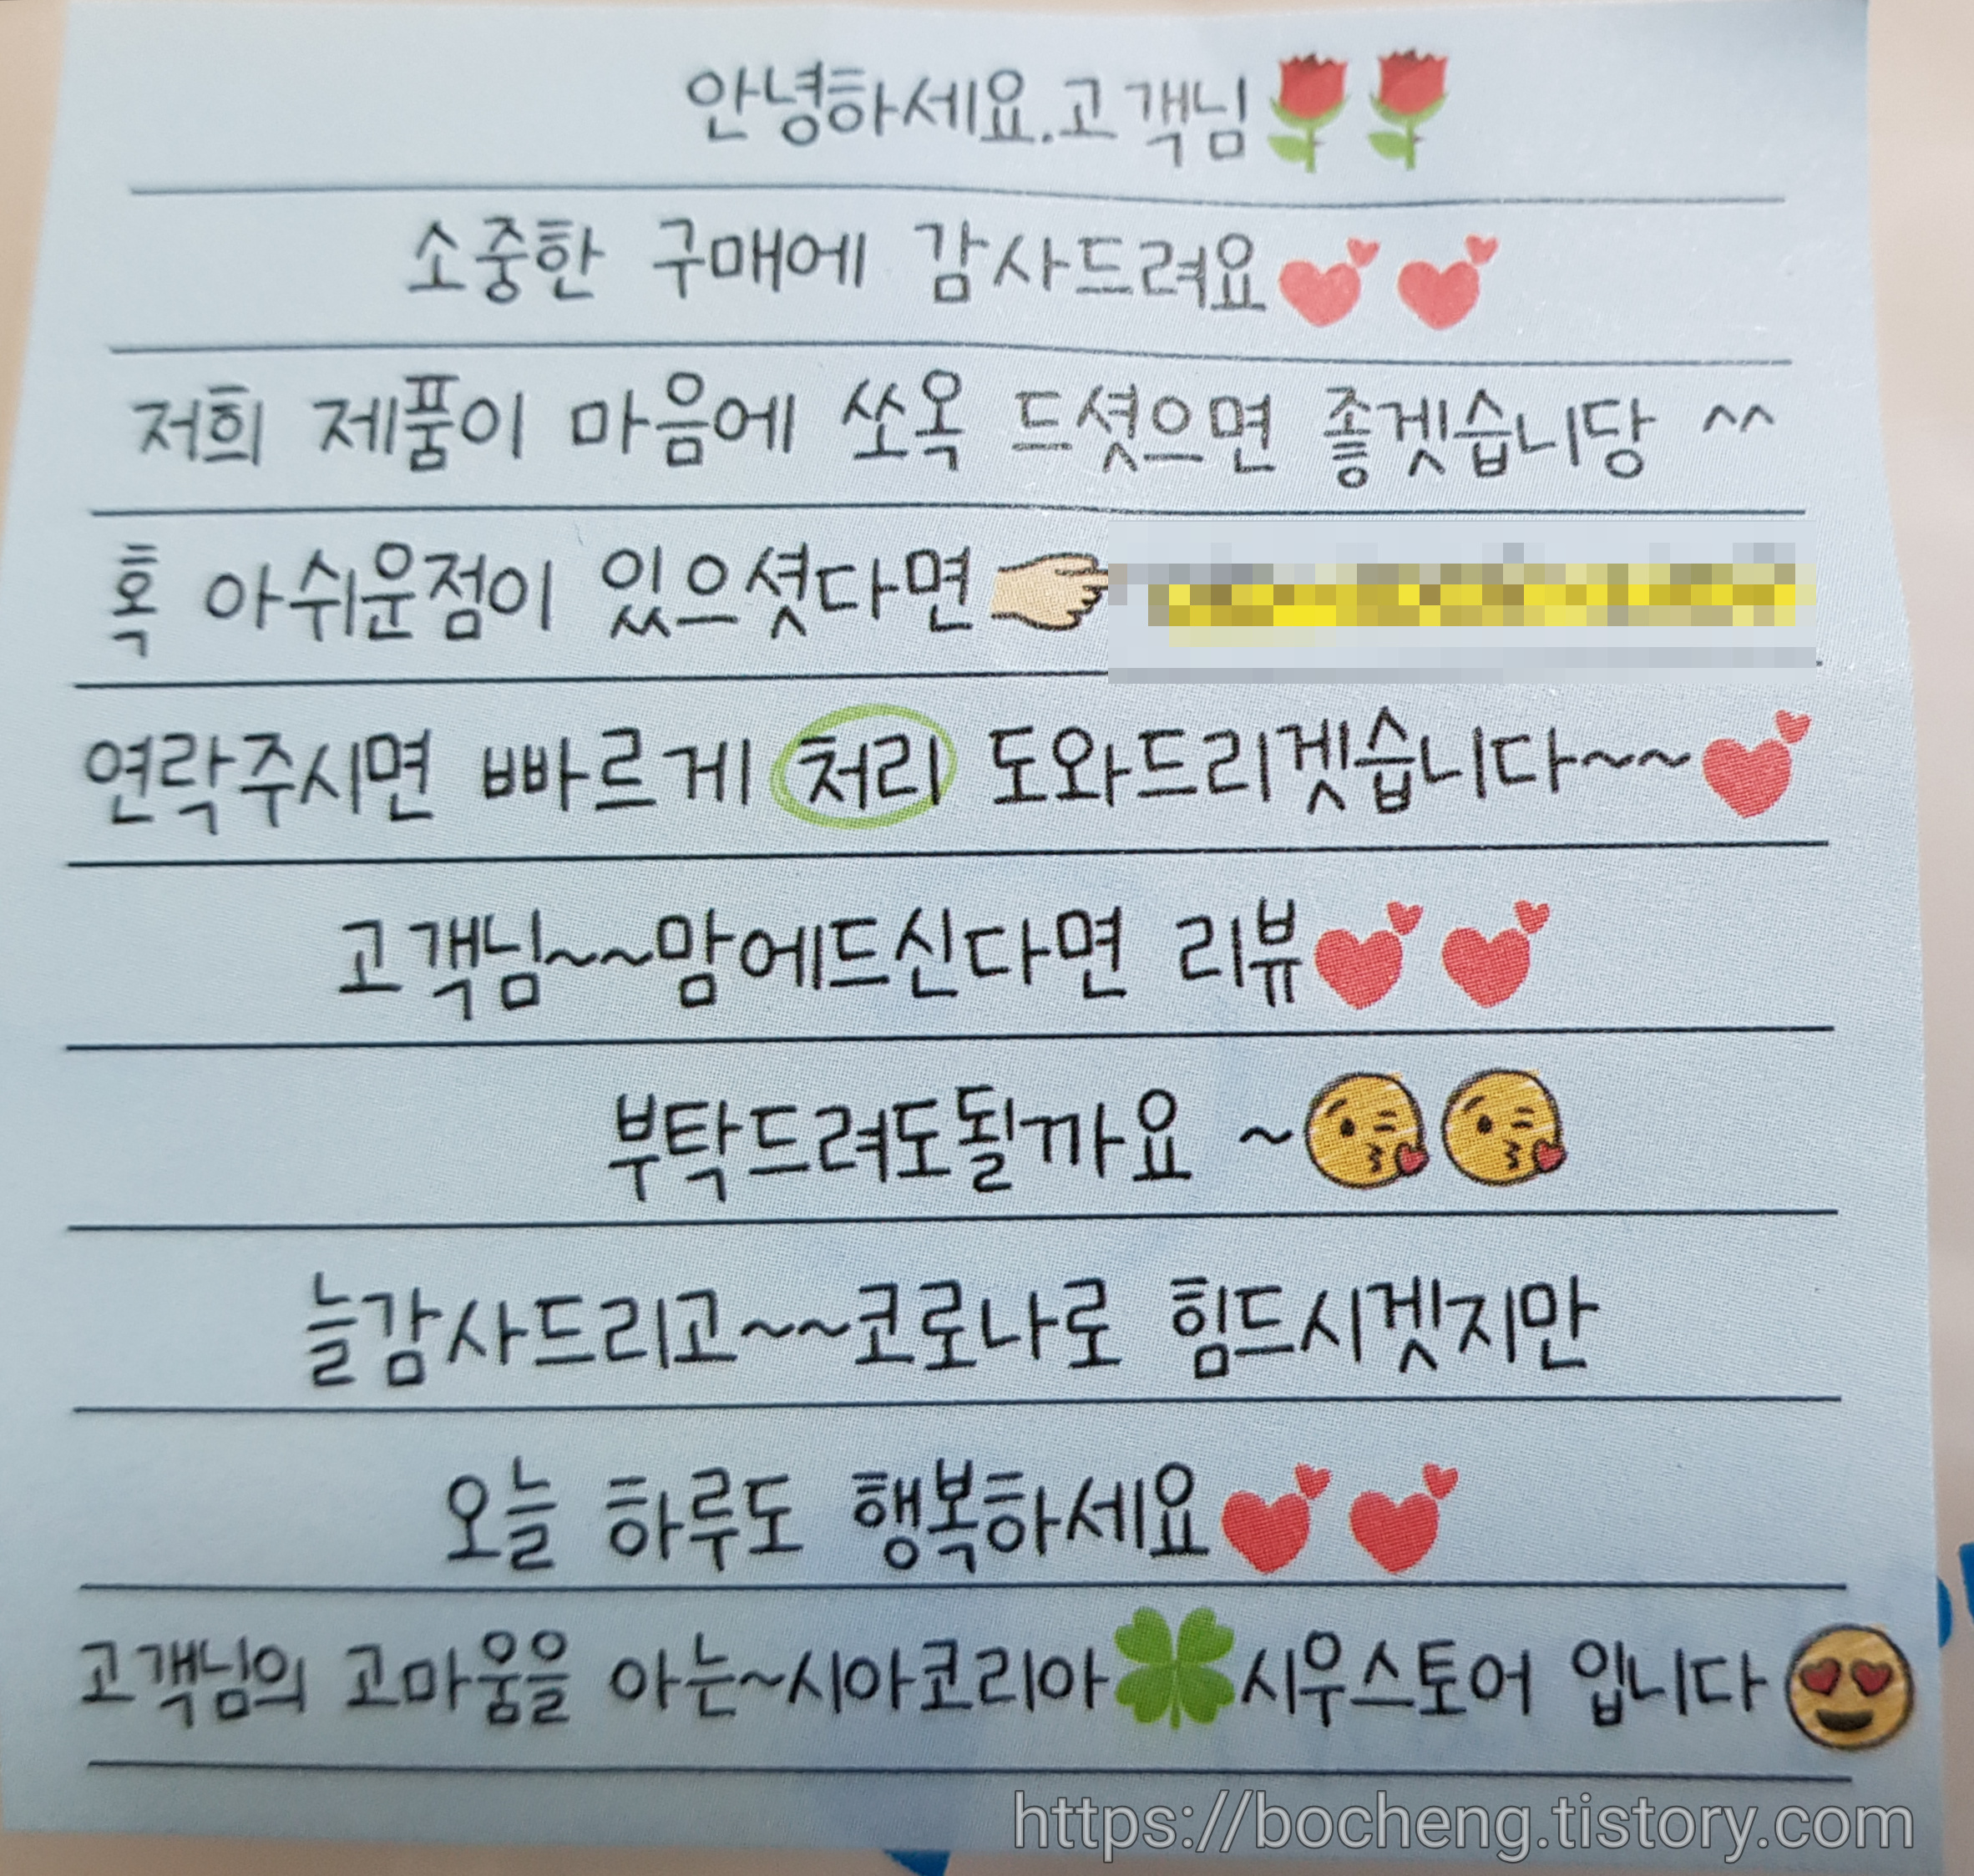 안녕하세요.고객님🌹🌹
소중한 구매에 감사드려요💕💕
저희 제품이 마음에 쏘옥 드셧으면 좋겟습니당 ^^
혹 아쉬운점이 있으셧다면👉
연락주시면 빠르게 처리 도와드리겟습니다~~💕
고객님~~맘에드신다면 리뷰💕💕
부탁드려도될까요 ~😘😘
늘감사드리고~~코로나로 힘드시겟지만
오늘 하루도 행복하세요💕💕
고객님의 고마움을 아는~시아코리아🍀시우스토어 입니다😍
https://bocheng.tistory.com